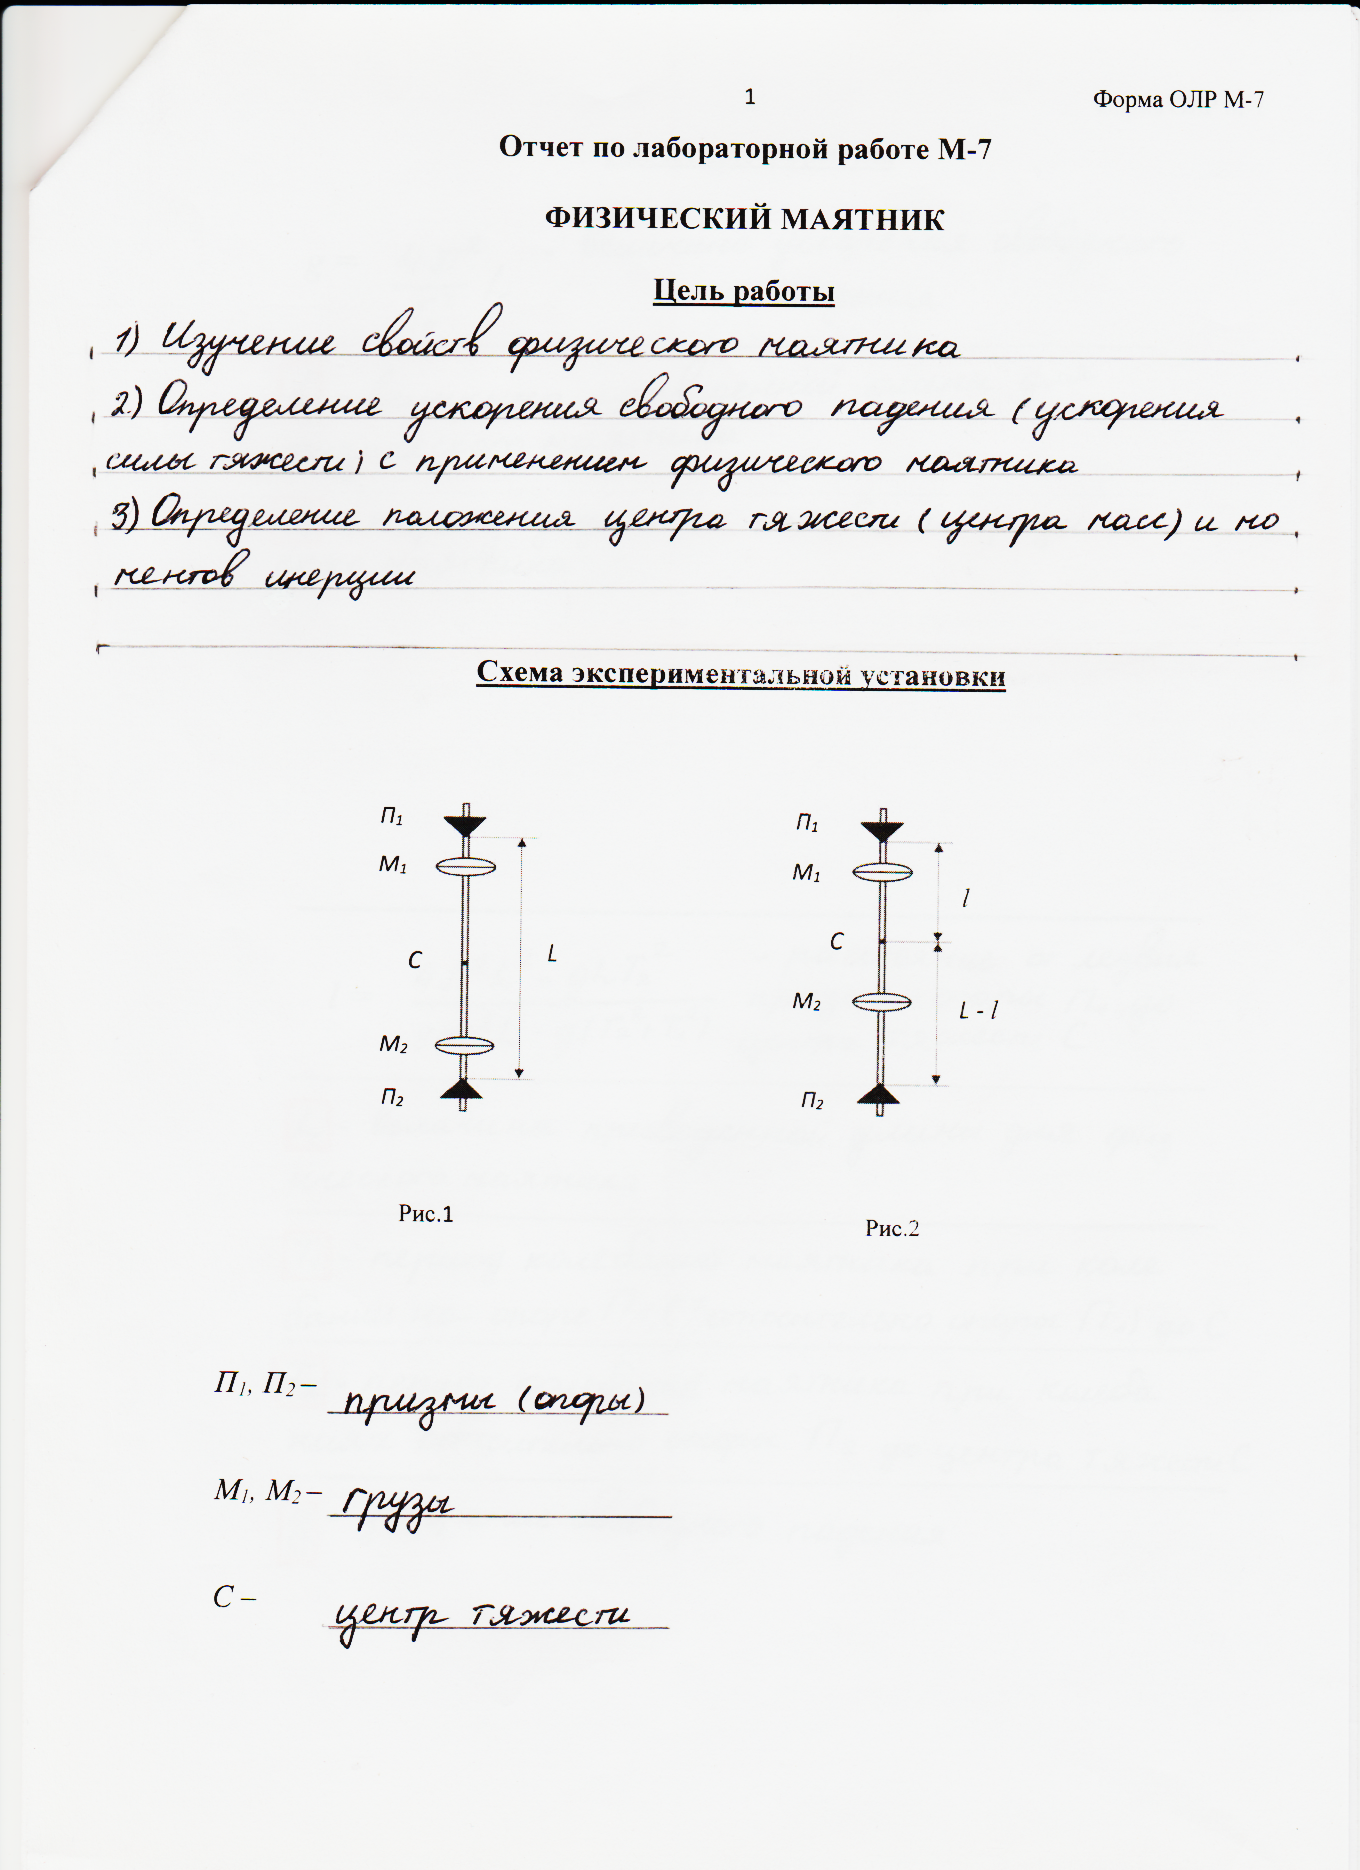 1
Форма ОЛР М-7
Отчет по лабораторной работе М-7
ФИЗИЧЕСКИЙ МАЯТНИК
Цель работы
1) Изучение свойств физического маятника
2) Определение ускорения свободного падения (ускорения
силы тяжести) с применением физического маятника
3) Определение положения центра тяжести (центра масс) и мо
ментов инерции
Схема экспериментальной установки
П1
М1
С
М2
П2
L
Рис.1
П1
М1
С
М2
П2
l
L - l
Рис.2
П1, П2 – призмы (опоры)
М1, М2 – грузы
С – центр тяжести